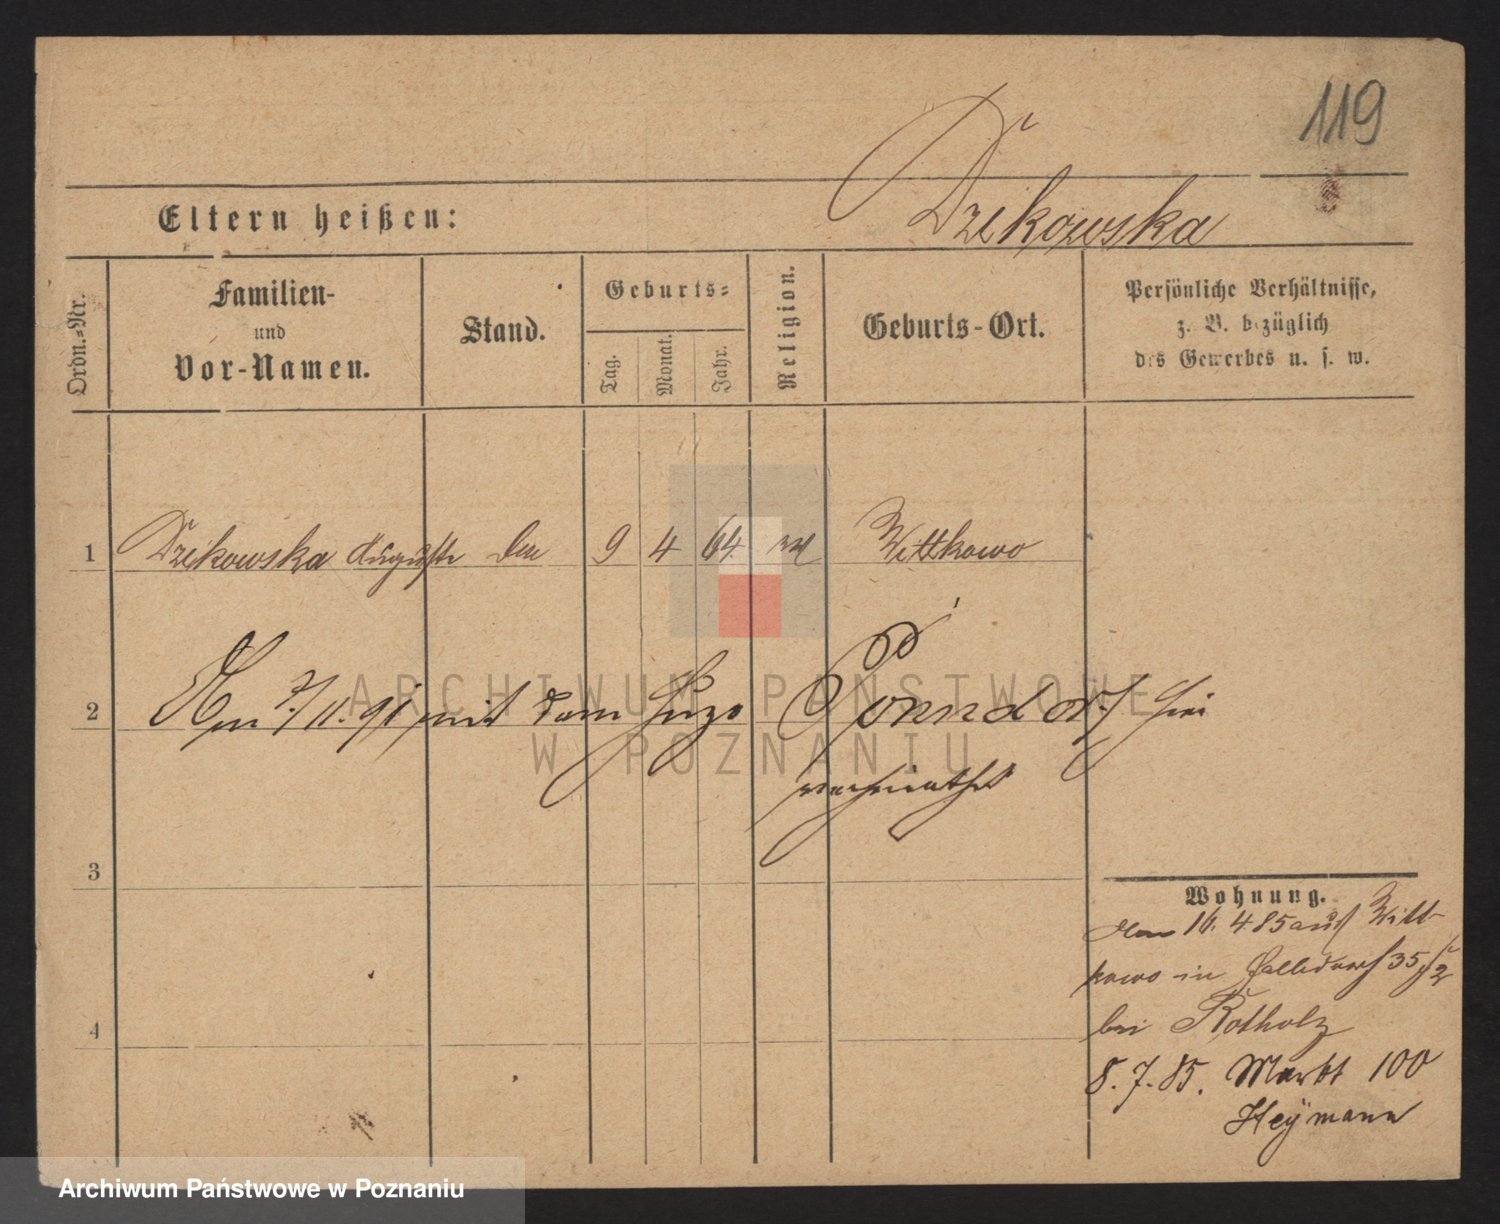 119
Dzekowska
Eltern heißen:
Ordn.-Nr.
Familien-
und
Vor-Namen.
Stand.
Geburts-
Tag.
Monat.
Jahr.
Religion.
Geburts-Ort.
Persönliche Verhältnisse,
z. B. bezüglich
des Gewerbes u. s. w.
1 Dzeikowska Auguste 9 4 64. Wittkowo
2 Am 7/11. 91 mit dem Hugo Ponndorf hier
verheirathet
3
4
Wohnung.
16. 4 85 aus Witt-
kowo in Halbdorf 35
bei Rotholz
8. 7. 85. Markt 100
Heymann
ARCHIWUM PAŃSTWOWE
W POZNANIU
Archiwum Państwowe w Poznaniu